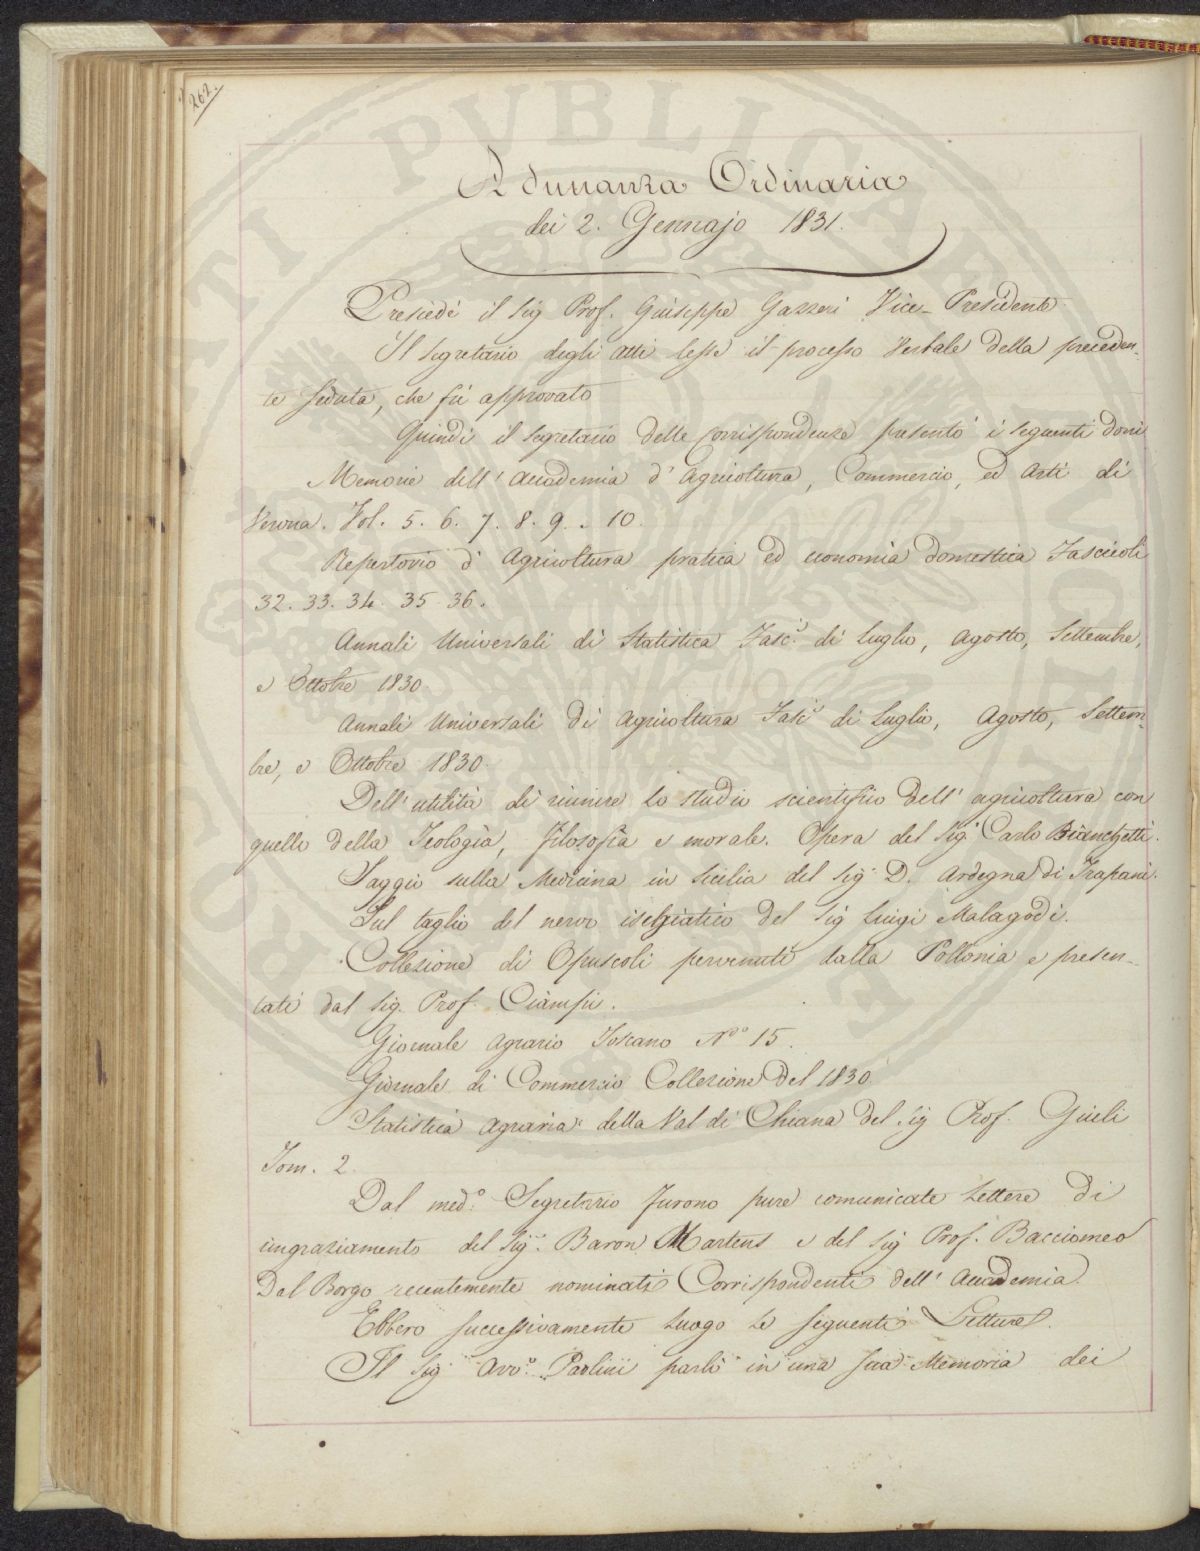 262.
Adunanza Ordinaria
dei 2. Gennajo 1831.
Presiedé il Sig Prof. Giuseppe Gazzeri Vice-Presidente
Il Segretario degli Atti lesse il processo Verbale della preceden-
te Seduta, che fù approvato
Quindi il Segretario delle Corrispondenze presentò i seguenti doni
Memorie dell' Accademia d' Agricoltura, Commercio, ed Arti di
Verona. Vol. 5. 6. 7. 8. 9. . 10.
Repertorio d' Agricoltura pratica ed economia domestica Fascicoli
32. 33. 34. 35. 36.
Annali Universali di Statistica Fasc.i di Luglio, Agosto, Settembre,
e Ottobre 1830.
Annali Universali di Agricoltura Fasc.i di Luglio, Agosto, Settem-
bre, e Ottobre 1830.
Dell' utilità di riunire lo studio scientifico dell' agricoltura con
quello della Teologia, Filosofia e morale. Opera del Sig.r Carlo Bianchetti.
Saggio sulla Medicina in Sicilia del Sig.r D. Ardegna di Trapani.
Sul taglio del nervo ischiatico del Sig Luigi Malagodi.
Collezione di Opuscoli pervenuti dalla Pollonia e presen-
tati dal Sig. Prof. Ciampi.
Giornale Agrario Toscano N.o 15.
Giornale di Commercio Collezione del 1830.
Statistica Agraria della Val di Chiana del Sig Prof. Giuli
Tom. 2.
Dal med.o Segretario furono pure comunicate Lettere di
ringraziamento del Sig.r Baron Martens e del Sig Prof. Bacciomeo
Dal Borgo recentemente nominati Corrispondenti dell' Accademia.
Ebbero successivamente luogo le seguenti Letture.
Il Sig Avv.o Paolini parlò in una sua Memoria dei